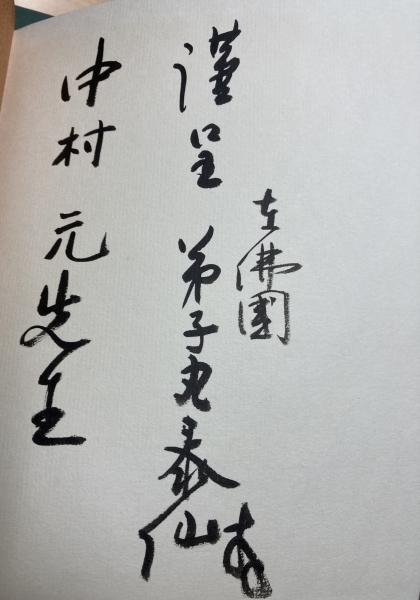 在佛國
謹呈 弟子丸泰仙
中村元先生